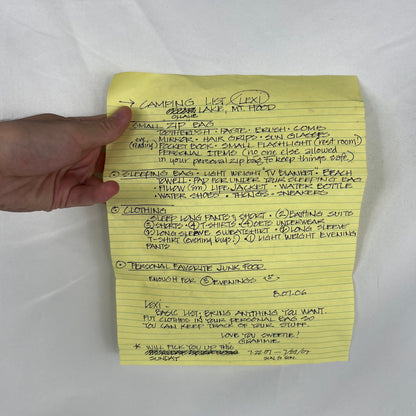 → CAMPING LIST (LEXI)
LAKE, MT. HOOD
SMALL ZIP BAG
TOOTHBRUSH · PASTE · BRUSH · COMB
MIRROR · HAIR GRIPS · SUN GLASSES
(reading) POCKET BOOK · SMALL FLASHLIGHT (rest room)
PERSONAL ITEMS (no one else allowed
in your personal zip bag, to keep things safe.)
SLEEPING BAG · LIGHT WEIGHT TV BLANKET · BEACH
TOWEL · PAD FOR UNDER YOUR SLEEPING BAG
· PILLOW (sm) LIFE JACKET · WATER BOTTLE
WATER SHOES · THONGS · SNEAKERS
CLOTHING
SLEEP LONG PANTS & SHORT · (2) BATHING SUITS
SHORTS · (4) T-SHIRTS · SETS UNDERWEAR
LONG SLEEVE SWEATSHIRT · LONG SLEEVE
T-SHIRT (evening bugs!) · (1) LIGHT WEIGHT EVENING
PANTS
PERSONAL FAVORITE JUNK FOOD
ENOUGH FOR EVENINGS
8.07.06
LEXI -
BASIC LIST; BRING ANYTHING YOU WANT.
PUT CLOTHES IN YOUR PERSONAL BAG SO
YOU CAN KEEP TRACK OF YOUR STUFF.
LOVE YOU SWEETIE!
GRAMMIE
* WILL PICK YOU UP
SUNDAY